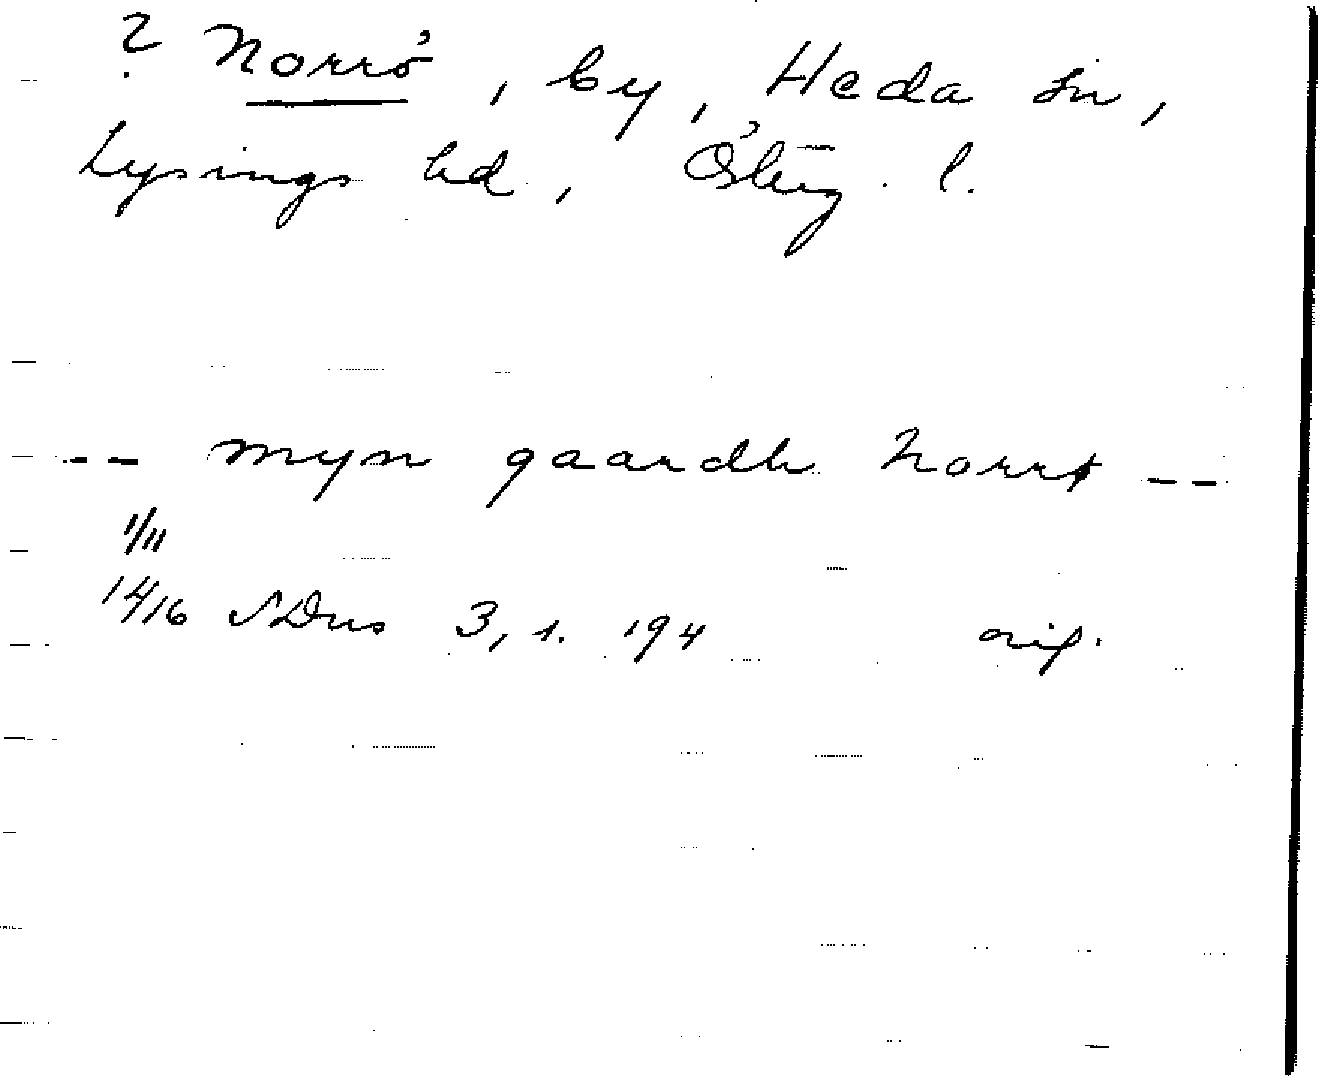 ? Norrö, by, Heda sn,
Lysings hd, Österg. l.
-- myn gaardh Norrø --
1/11
1416 SDns 3, 1. 194 orig.